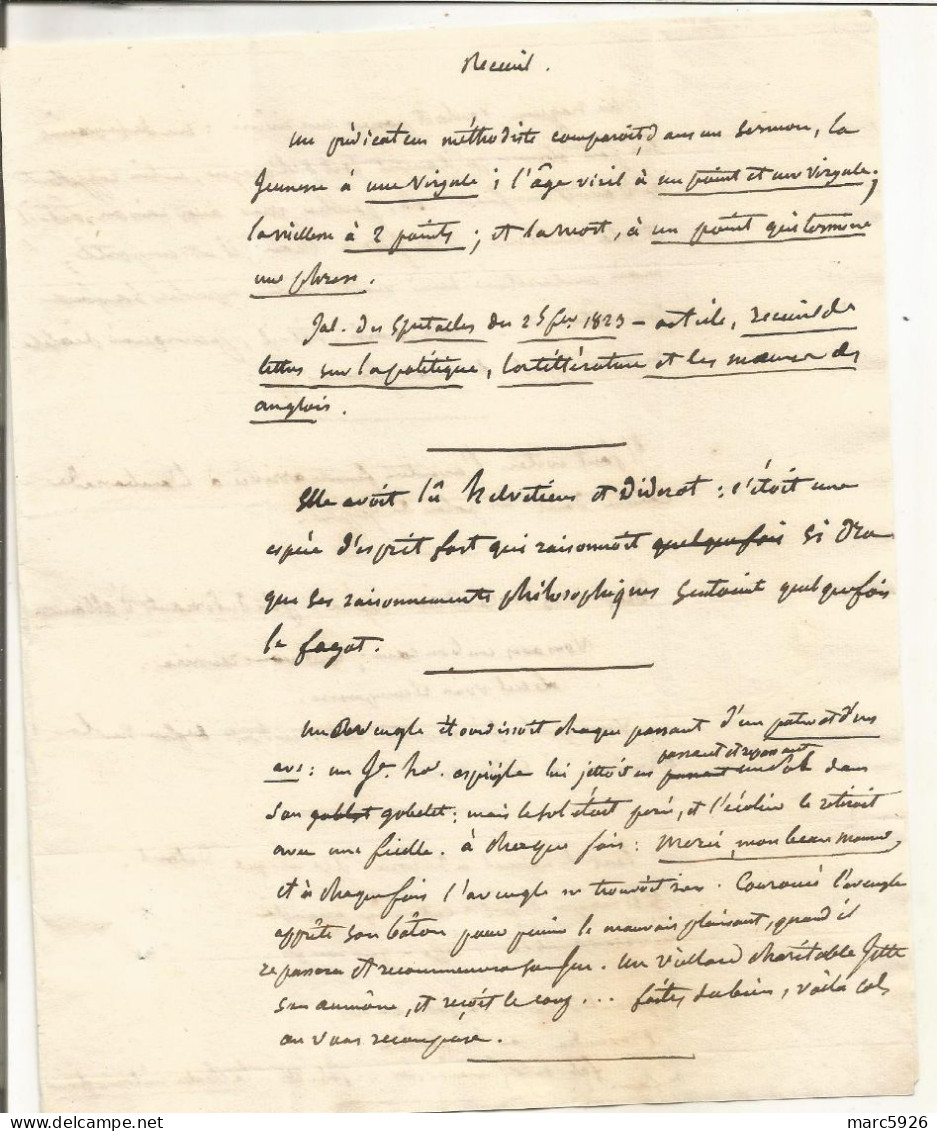 Recueil.
un prédicateur méthodiste comparoit, dans un sermon, la
Jeunesse à une virgule ; l'âge viril à un point et une virgule ;
la vieillesse à 2 points ; et la mort, à un point qui termine
une phrase.
Jal. des Spectacles du 25 fer. 1823 – article, recueil de
lettres sur la politique, la littérature et les mœurs des
anglois.
Elle avoit lû helvetius et Diderot : c'étoit une
espèce d'esprit fort qui raisonnoit quelquefois si
que ses raisonnements philosophiques sentoient quelquefois
le fagot.
un aveugle étourdissoit chaque passant d'un
: un Je. he. espiègle lui jettoit en passant et repassant passant un sol dans
son goblet gobelet : mais le sol étoit percé, et l'écolier le retiroit
avec une ficelle. à chaque fois : merci, mon beau
et à chaque fois l'aveugle ne trouvoit rien. Courroucé l'aveugle
apprête son bâton pour punir le mauvais plaisant, quand il
repassera et recommencera son jeu. un vieillard charitable Jette
son aumône, et reçoit le coup ... faites du bien, voilà
on vous récompense.
marc5926